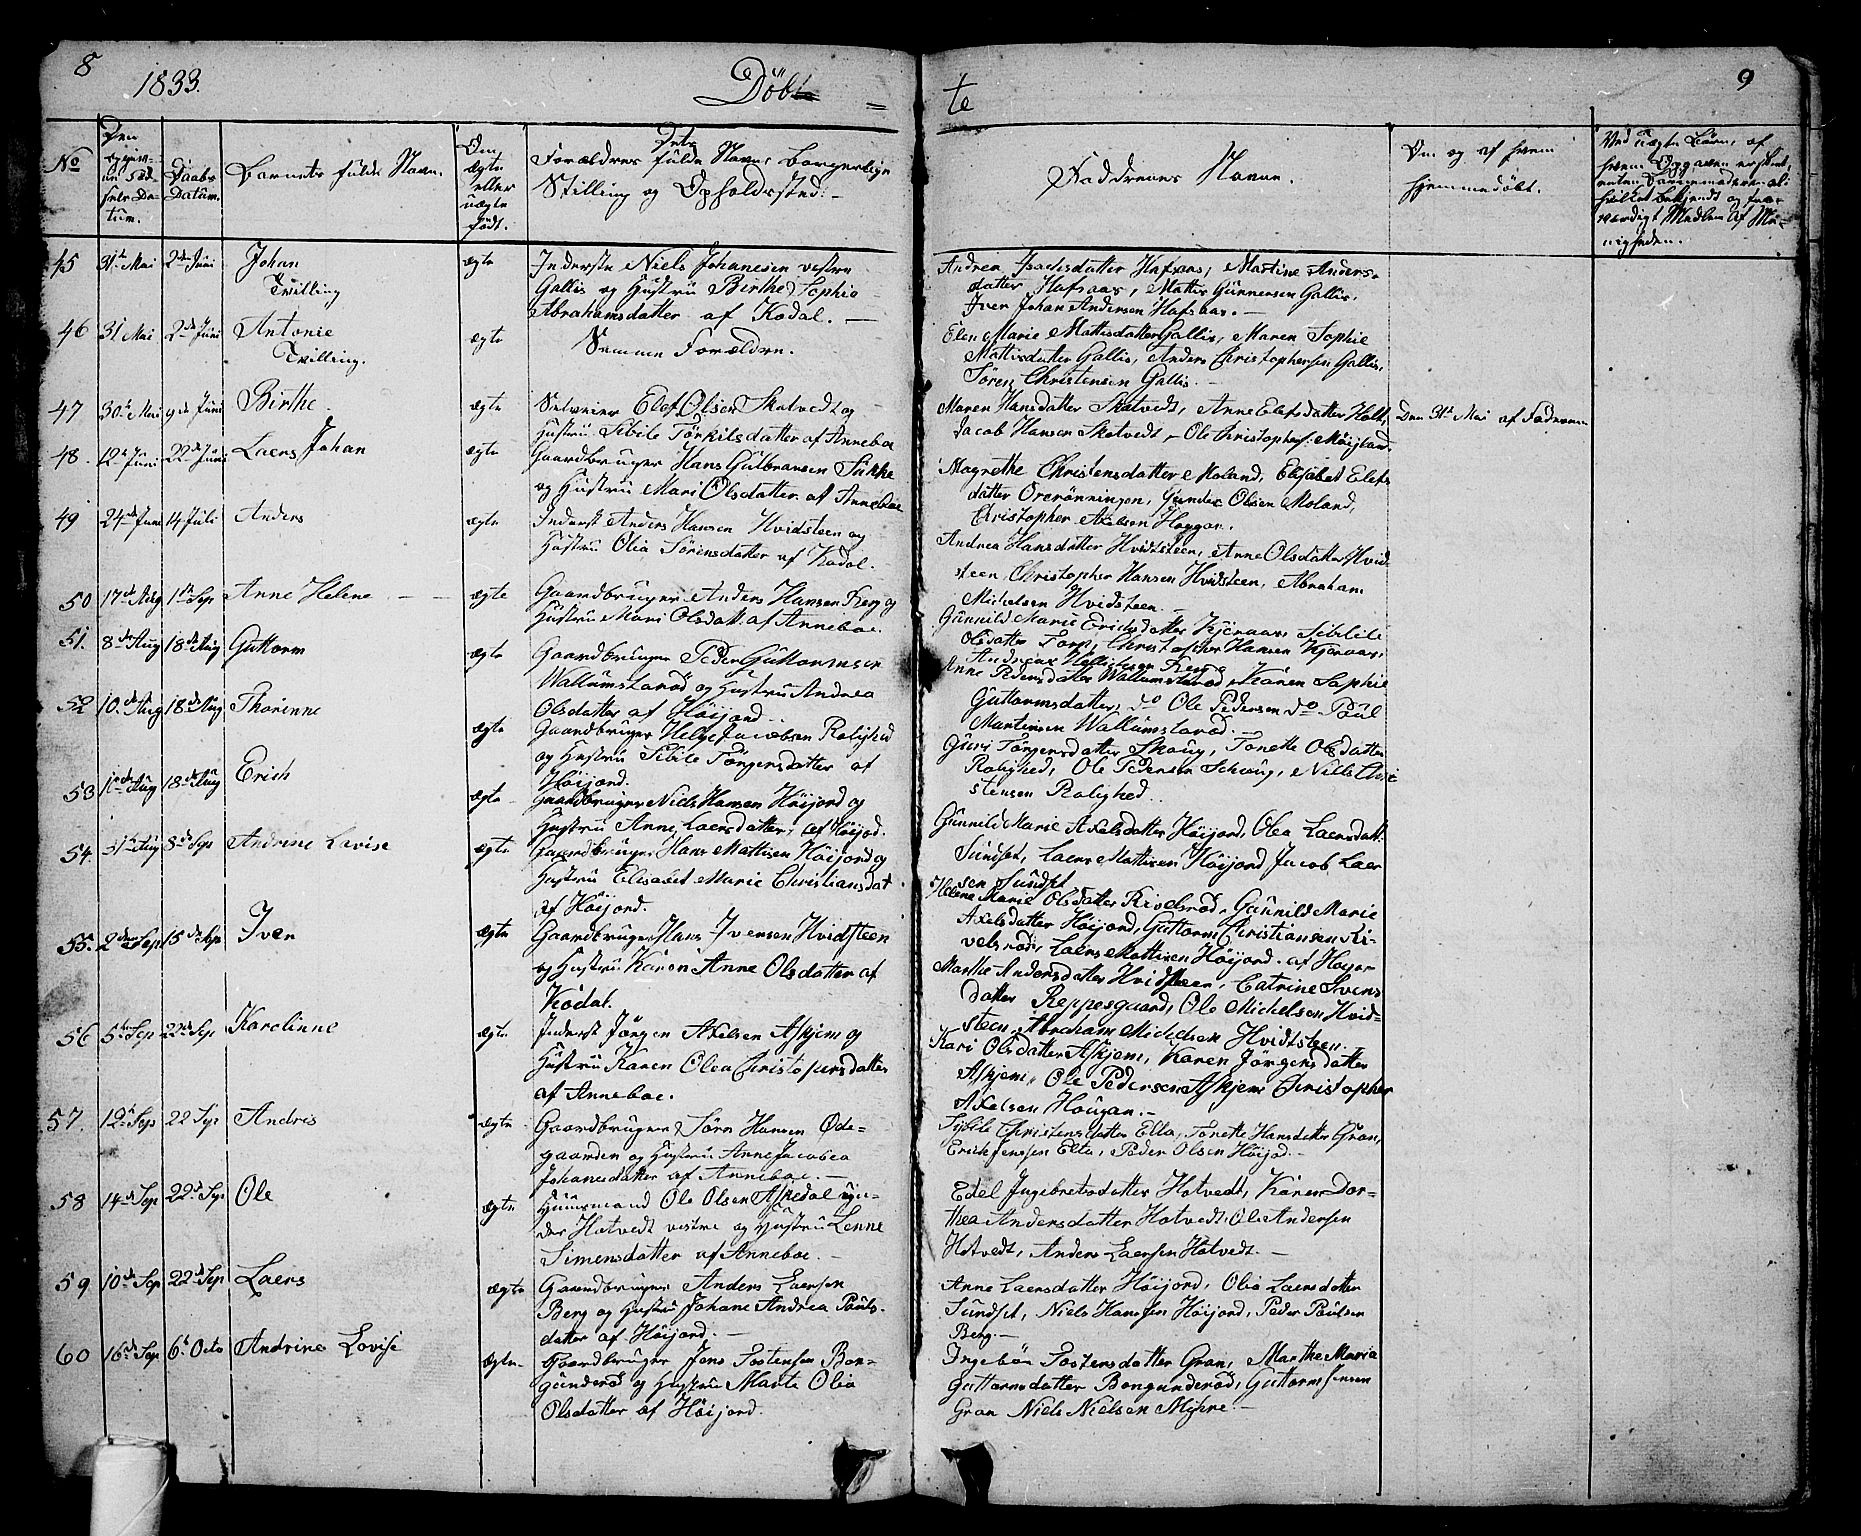 8
1833.
Döbte
9
No
Daabs Datum.
Barnets fulde Navn.
Om ægte eller uægte født.
Forældres fulde Navne borgerlige
Stilling og Opholdssted.
Faddrenes Navne.
Om og af hvem
hjemmedöbt.
45 31te Mai 2den Juni Johan Tvilling ægte
Inderste Niels Johanesen vestre
Gallis og Hustru Birthe Sophie
Abrahamsdatter af Kodal.
Andrea Isachsdatter Hafsaas, Martine Anders-
datter Hafsaas, Mattis Gunnersen Gallis,
Iver Johan Andersen Hafsaas.
46 31te Mai 2den Juni Antonie Tvilling. ægte
Samme Forældre.
Elen Marie Mattisdatter Gallis, Maren Sophie
Mattisdatter Gallis, Anders Christophersen Gallis,
Sören Christensen Gallis.
47 30te Mai 9de Juni Birthe ægte
Elef Olsen Skatvedt og
Hustru Sibile Törkilsdatter af Anneboe
Maren Hansdatter Skatvedt, Anne Elefsdatter Holt,
Jacob Hansen Skatvedt, Ole Christophers: Möyland.
Den 31te Mai af Fadrenen
48 12te Juni 22de Juni Laers Johan ægte
Gaardbruger Hans Gulbransen Sukke
og Hustru Mari Olsdatter af Anneboe
Magrethe Christensdatter Moland, Elisabet Elefs
datter Ororönningen, Gunder Olsen Moland,
Christopher Axelsen Hoggan.
49 24de Juni 14 Juli Anders ægte
Inderst Anders Hansen Hvidsteen og
Hustru Olia Sörensdatter af Kodal.
Andrea Hansdatter Hvidsteen, Anne Olsdatter Hvid
steen, Christopher Hansen Hvidsteen, Abraham
Michelsen Hvidsteen.
50 17de Aug 1ste Sep Anne Helene ægte
Gaardbruger Anders Hansen Berg og
Hustru Mari Olsdatt. af Anneboe.
Gunnild Marie Erichsdatter Kjeraas, Sibbile
Olsdatter Torp, Christopher Hansen Kjeraas,
51. 8de Aug 18de Aug Guttorm ægte
Gaardbruger Peder Guttormsen
Wallumsrød og Hustru Andrea
Olsdatter af Höijord.
Anne Pedersdatter Wallumsrød, Karen Sophie
Guttormsdatter, do Ole Pedersen do Poul
Martinsen Wallumsrød.
52 10de Aug 18de Aug Thorinne ægte
Gaardbruger Helge Jacobsen Rolighed
og Hustru Sibile Törgersdatter af
Höijord.
Guri Törgersdatter Skoug, Tonette Olsdatter
Rolighed, Ole Pedersen Schoug, Nills Chri
stensen Rolighed.
53 18de Aug Erich ægte
Gaardbruger Niels Hansen Höijord og
Hustru Anne Laersdatter, af Höijord.
Gunnild Marie Axelsdatter Höijord, Olea Laersdatt.
Sundset, Laers Mattisen Höijord, Jacob Laer
sen Sundset
54. 31te Aug 8de Sep Andrine Lovise ægte
Gaardbruger Hans Mattisen Höijord og
Hustru Elisabet Marie Christiansdat
af Höijord.
Helene Marie Olsdatter Rivelsröd, Gunnild Marie
Axelsdatter Höijord, Guttorm Christiansen Ri-
velsröd, Laers Mattisen Höijord. af
55. 2den Sep 15de Sep Iver ægte
Gaardbruger Hans Iversen Hvidsteen
og Hustru Karen Anne Olsdatter af
Kodal.
Marthe Andersdatter Hvidsteen, Catrine Ivers
datter Reppesgaard, Ole Michelsen Hvid-
steen, Abraham Michelsen Hvidtsteen.
56 5te Sep 22de Sep Karolinne ægte
Inderst Jörgen Axelsen Askjem og
Hustru Karen Olea Christophersdatter
af Anneboe.
Kari Olsdatter Askjem, Karen Jörgensdatter
Askjem, Ole Pedersen Askjem Christopher
Axelsen Hougan.
57. 12te Sep 22 Sep Andris ægte
Gaardbruger Sörn Hansen Öde-
gaarden og Hustru Anne Jacobea
Johanesdatter af Anneboe.
Sybile Christensdatter Elta, Tonette Hansdatter Gran,
Erich Jenssen Elta, Peder Olsen Höijod.
58 14de Sep 22de Sep Ole ægte
Huusmand Ole Olsen Askedal un-
der Hotvedt vestre og Hustru Lenne
Simensdatter af Anneboe.
Edel Ingebretsdatter Hotvedt, Karen Dor-
thea Andersdatter Hotvedt, Ole Andersen
Hotvedt, Anders Laersen Hotvedt.
59 10de Sep 22de Sep Laers ægte
Gaardbruger Anders Laersen
Berg og Hustru Johane Andrea Pouls-
datter af Höijord.
Anne Laersdatter Höijord, Olia Laersdatter
Sundset, Niels Hanssen Höijord, Peder Poulsen
Berg.
60 16de Sep 6te Octo Andrine Lovise ægte
Gaardbruger Jens Sostensen Bon-
gunderöd og Hustru Marte Olia
Olsdatter af Höijord.
Ingebör Sostensdatter Gran, Marthe Maria
Guttormsdatter Bongunderöd, Guttorm Jensen
Gran Niels Nielsen Myhre.